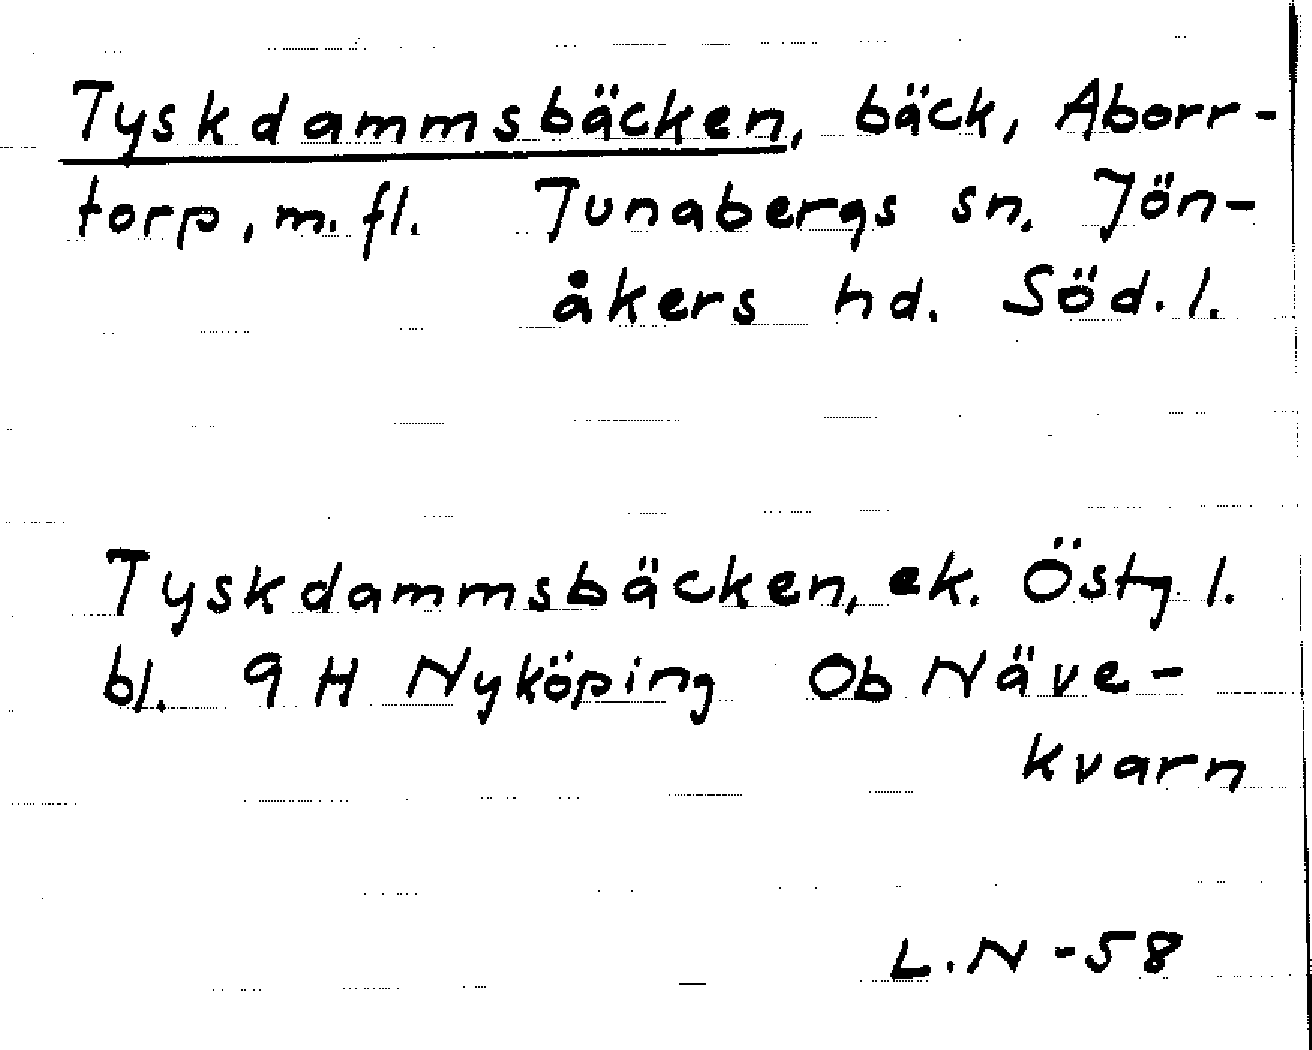 Tyskdammsbäcken, bäck, Aborr-
torp, m. fl. Tunabergs sn. Jön-
åkers hd. Söd. l.
Tyskdammsbäcken, ek. Östg l.
bl. 9 H Nyköping Ob Näve-
kvarn
L.N -58